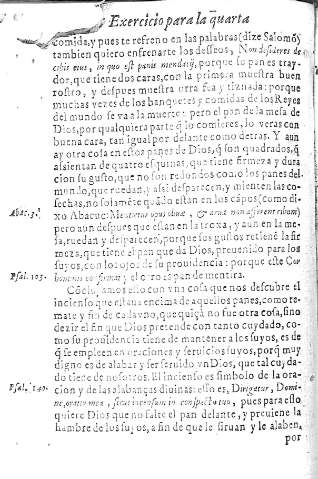 Exercicio para la quarta
comida, y pues te refreno en las palabras (dize Salomõ)
tambien quiero enfrenarte los desseos, Non desideres de
cibis eius, in quo est panis mendacij, porque su pan es tray-
dor, que tiene dos caras, con la primera muestra buen
rostro, y despues muestra otra fea y tiznada: porque
muchas vezes de los banquetes y comidas de los Reyes
del mundo se va a la muerte: pero el pan de la mesa de
Dios, por qualquiera parte q̃ lo comieres, lo veras con
buena cara, tan igual por delante como detras. Y aun
ay otra cosa en estos panes de Dios, q̃ son quadrados, q̃
assientan de quatro esquinas, que tiene firmeza y dura
cion su gusto, que no son redondos como los panes del
mundo, que ruedan, y assi desparecen, y mienten las co-
sechas, no solamẽte quãdo estan en los cãpos (como di-
Abac. 3. xo Abacuc: Mentietur opus oliuæ, & arua non afferent cibum)
pero aun despues que estan en la troxa, y aun en la me-
sa, ruedan y desparecen, porque sus gustos no tienẽ la fir
meza, que tiene el pan que da Dios, preuenido para los
suyos, con los ojos de su prouidencia: porque este Cor
Psal. 103. hominis confirmat, y el otro es pan de mentira.
Cõcluyamos esto con vna cosa que nos descubre el
incienso que estaua encima de aquellos panes, como re-
mate y fin de cada vno, que quiçà no fue otra cosa, sino
dezir el fin que Dios pretende con tanto cuydado, co-
mo su prouidencia tiene de mantener a los suyos, es de
q̃ se empleen en oraciones y seruicios suyos, porq̃ muy
digno es de alabar y ser seruido vn Dios, que tal cuyda-
do tiene de nosotros. El incienso es simbolo de la ora-
Psal. 140. cion y de las alabanças diuinas: esso es, Dirigatur, Domi-
ne, oratio mea, sicut incensum in conspectu tuo, pues para esso
quiere Dios que no falte el pan delante, y preuiene la
hambre de los suyos, a fin de que le siruan y le alaben,
por